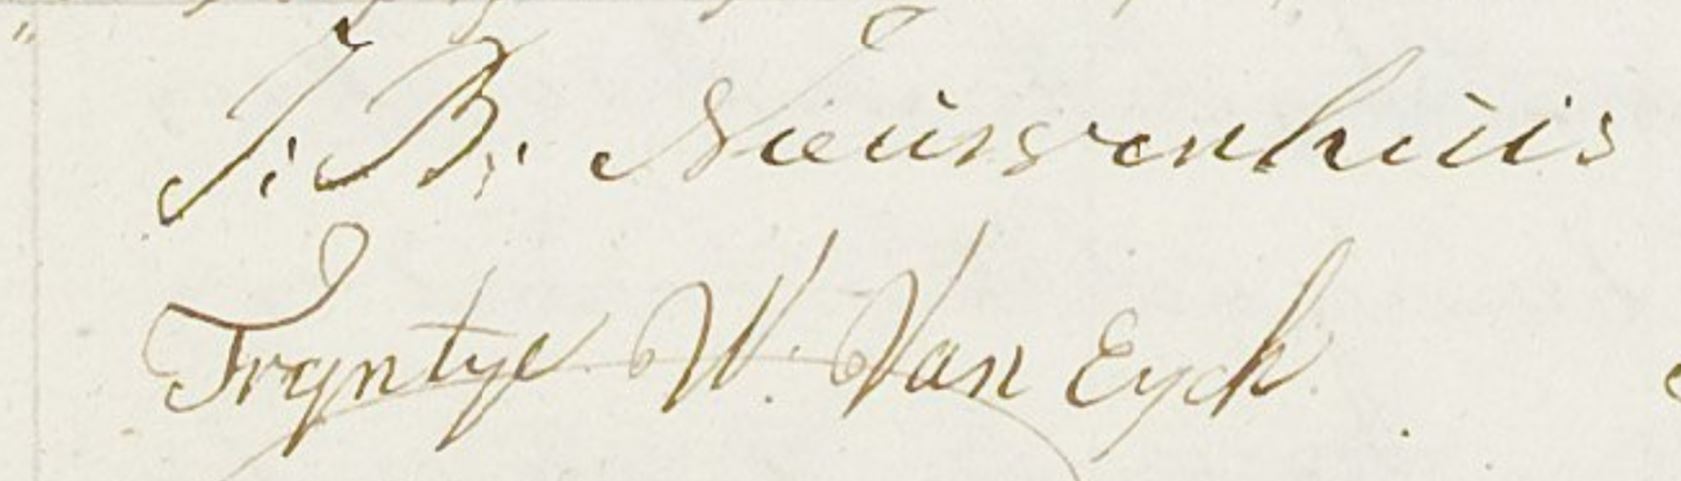 J. B. Nieuwenhuis
Tryntye W. Van Eyck